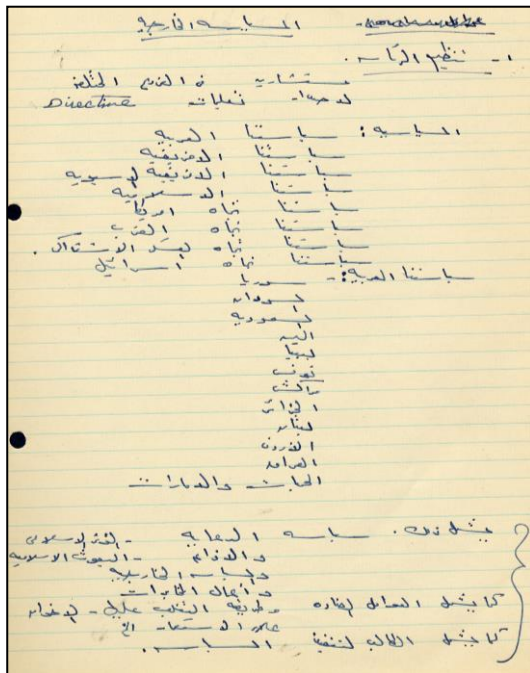 السياسه الخارجيه
١- تنظيم الرئاسه.
مستشاريه في النواحي المختلفة
لاصدار تعليمات Directive
السياسيه: سياستنا العربيه
سياستنا الافريقيه
سياستنا الافريقيه الاسيويه
سياستنا الاسلاميه
سياستنا تجاه امريكا
سياستنا تجاه الغرب
سياستنا تجاه الاشتراكى.
سياستنا تجاه اسرائيل
سياستنا العربيه:- سوريا
السودان
السعوديه
اليمن
ليبيا
تونس
مراكش
الجزائر
لبنان
الاردن
العراق
المحميات والامارات
يشمل ذلك. سياسه الدعايه - المؤتمر الاسلامى
والاذاعه - البعوث الاسلاميه
والسياسه الخارجيه
واعمال المخابرات
كما يشمل العوامل المضاده وطريقه التغلب عليها - الاخوان
الاستعمار الخ
كما يشمل المطالب لتنفيذ السياسه.